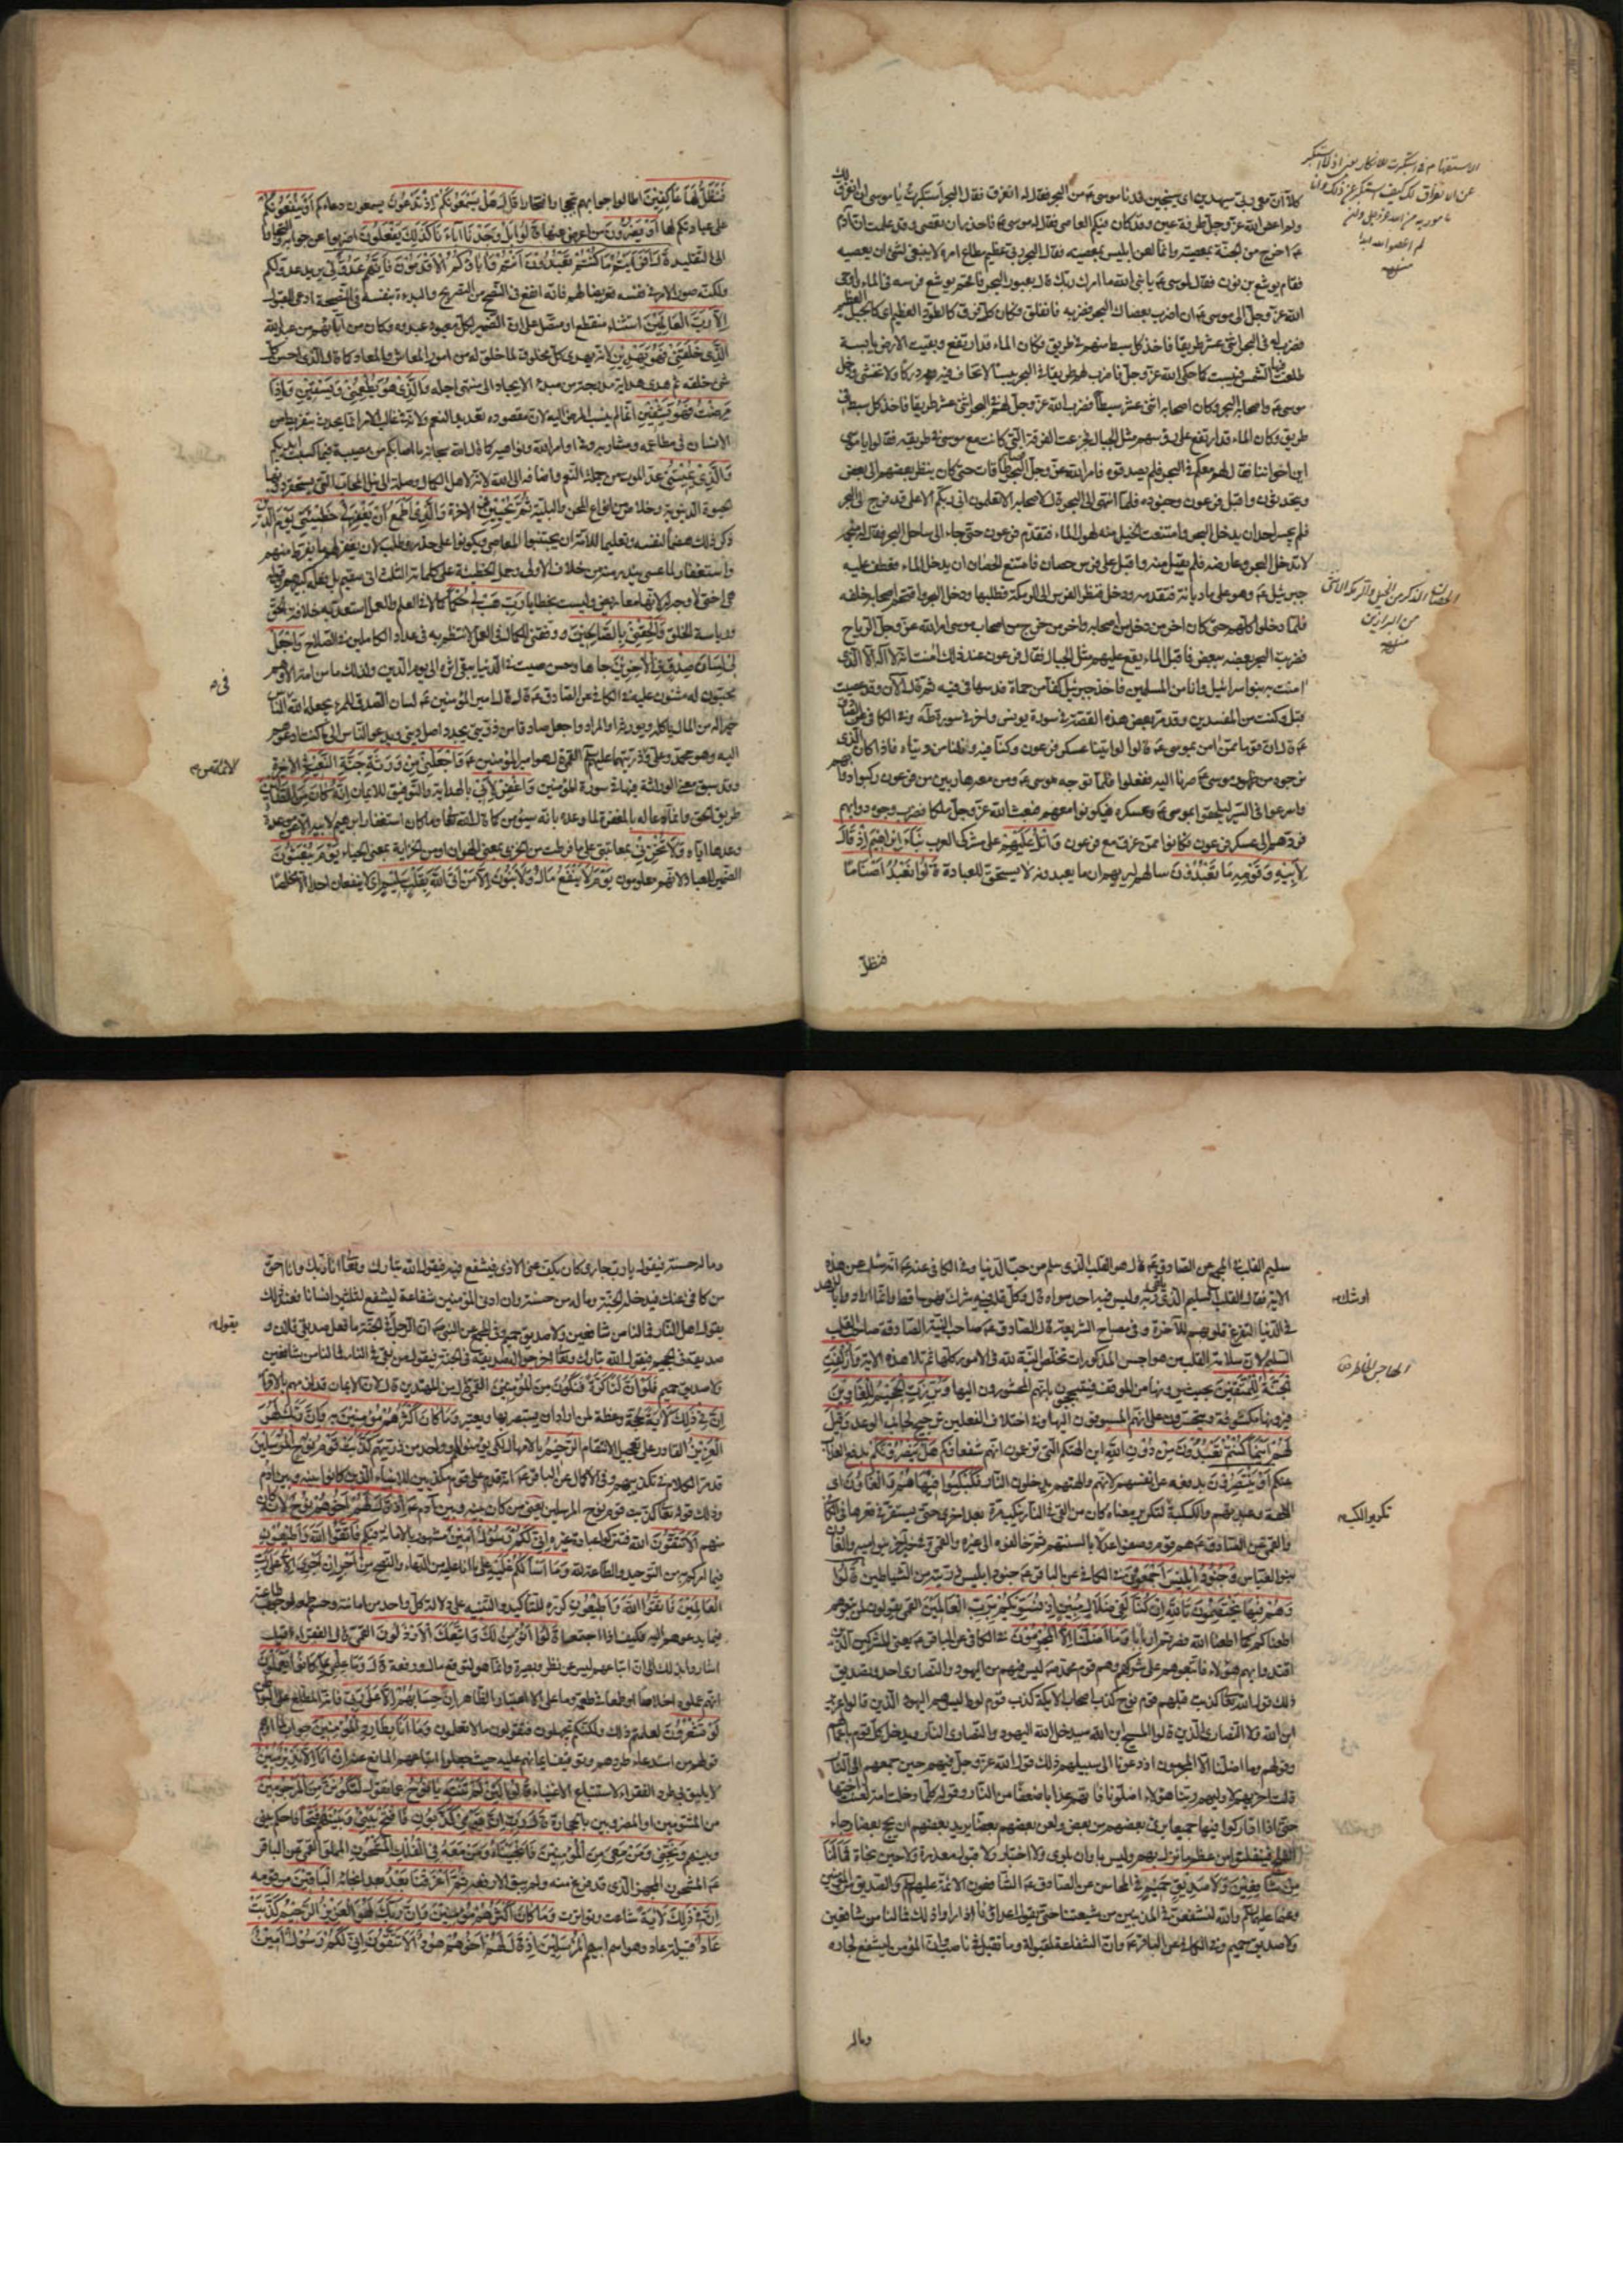 كلا ان معي ربي سيهدين اي سينجين فدنا موسى ع من البحر فقال له انفرق فقال البحر استكبرت يا موسى ان انفرق لك
ولم اعص الله عز وجل طرفة عين وقد كان فيكم العاصي فقال له موسى ع فاحذر ان تعصي وقد علمت ان آدم
ع اخرج من الجنة بمعصيته وانما لعن ابليس بمعصيته فقال البحر ربي عظيم مطاع امره ولا ينبغي لشيء ان يعصيه
فقام يوشع بن نون فقال لموسى ع يا نبي الله ما امرك ربك قال بعبور البحر فاقحم يوشع فرسه في الماء فاوحى
الله عز وجل الى موسى ع ان اضرب بعصاك البحر فضربه فانفلق فكان كل فرق كالطود العظيم اي كالجبل العظيم
فضرب له في البحر اثني عشر طريقا فاخذ كل سبط منهم في طريق فكان الماء قد ارتفع وبقيت الارض يابسة
طلعت فيها الشمس فيبست كما حكى الله عز وجل فاضرب لهم طريقا في البحر يبسا لا تخاف دركا ولا تخشى ودخل
موسى ع واصحابه البحر وكان اصحابه اثني عشر سبطا فضرب الله عز وجل لهم في البحر اثني عشر طريقا فاخذ كل سبط في
طريق وكان الماء قد ارتفع على رؤسهم مثل الجبال فجزعت الفرقة التي كانت مع موسى في طريقه فقالوا يا موسى
اين اخواننا فقال لهم معكم في البحر فلم يصدقوه فامر الله عز وجل البحر فصار طاقات حتى كان ينظر بعضهم الى بعض
ويتحدثون واقبل فرعون وجنوده فلما انتهى الى البحر قال لاصحابه الا تعلمون اني ربكم الاعلى قد فرج لي البحر
فلم يجسر احد ان يدخل البحر وامتنعت الخيل منه لهول الماء فتقدم فرعون حتى جاء الى ساحل البحر فقال له منجمه
لا تدخل البحر وعارضه فلم يقبل منه واقبل على فرس حصان فامتنع الحصان ان يدخل الماء فعطف عليه
جبرئيل ع وهو على ماديانة فتقدمه ودخل فنظر الفرس الى الرمكة فطلبها ودخل البحر واقتحم اصحابه خلفه
فلما دخلوا كلهم حتى كان آخر من دخل من اصحابه وآخر من خرج من اصحاب موسى امر الله عز وجل الرياح
فضربت البحر بعضه ببعض فاقبل الماء يقع عليهم مثل الجبال فقال فرعون عند ذلك امنت انه لا اله الا الذي
امنت به بنوا اسرائيل وانا من المسلمين فاخذ جبرئيل كفا من حماة فدسها في فيه ثم قال الآن وقد عصيت
قبل وكنت من المفسدين وقد مر بعض هذه القصة في سورة يونس واخر في سورة طه وفي الكافي عن الصادق
ع قال ان قوما ممن امن بموسى ع قالوا لو اتينا عسكر فرعون وكنا فيه ونلنا من دنياه فاذا كان الذي
نرجوه من ظهور موسى ع صرنا اليه ففعلوا فلما توجه موسى ع ومن معه هاربين من فرعون ركبوا دوابهم
واسرعوا في السير ليلحقوا بموسى ع وعسكره فيكونوا معهم فبعث الله عز وجل ملكا فضرب وجوه دوابهم
فردهم الى عسكر فرعون فكانوا ممن غرق مع فرعون واتل عليهم على مشركي العرب نبأ ابراهيم اذ قال
لابيه وقومه ما تعبدون سالهم ليريهم ان ما يعبدونه لا يستحق للعبادة قالوا نعبد اصناما
فنظل
الاستفهام في استكبرت للانكار يعني اذ لم استكبر
لم اعص الله ابدا
منه
الحصان الذكر من الخيل والرمكة الانثى
من البراذين
منه
فنظل لها عاكفين اطالوا جوابهم تبجحا وافتخارا قال هل يسمعونكم اذ تدعون يسمعون دعاءكم او ينفعونكم
على عبادتكم لها او يضرون من اعرض عنها قالوا بل وجدنا اباءنا كذلك يفعلون اضربوا عن جوابه والتجأوا
الى التقليد قال افرايتم ما كنتم تعبدون انتم واباؤكم الاقدمون فانهم عدو لي يريد عدو لكم
ولكنه صور الامر في نفسه تعريضا لهم فانه انفع في النصح من التصريح والبدءة بنفسه في النصيحة ادعى للقبول
الا رب العالمين استثناء منقطع او متصل على ان الضمير لكل معبود عبدوه وكان من آبائهم من عبد الله
الذي خلقني فهو يهدين لانه يهدي كل مخلوق لما خلق له من امور المعاش والمعاد كما قال الذي احسن كل
شيء خلقه ثم هدى هداية مدرجة من مبدء الايجاد الى منتهى اجله والذي هو يطعمني ويسقين واذا
مرضت فهو يشفين انما لم ينسب المرض اليه لان مقصوده تعديد النعم ولانه في غالب الامر انما يحدث بتفريط من
الانسان في مطاعمه ومشاربه
والذي يميتني عد الموت من جملة النعم واضافه الى الله لانه لاهل الكمال وصلة الى نيل المحاب التي يستحقر دونها
الحيوة الدنيوية وخلاص من انواع المحن والبلية ثم يحيين في الاخرة والذي اطمع ان يغفر لي خطيئتي يوم الدين
ذكر ذلك هضما لنفسه وتعليما للامة ان يجتنبوا المعاصي ويكونوا على حذر وطلب لان يغفر لهم ما يفرط منهم
واستغفارا لما عسى يندر منه من خلاف الاولى وحمل الخطيئة على كلماته الثلث اني سقيم بل فعله كبيرهم وقوله
هي اختي لا وجه له لانها معاريض وليست بخطايا رب هب لي حكما كمالا في العلم والعمل استعد به خلافة الحق
ورياسة الخلق والحقني بالصالحين ووفقني للكمال في العمل لانتظم به في عداد الكاملين في الصلاح واجعل
لي لسان صدق في الاخرين جاها وحسن صيت في الدنيا يبقى اثره الى يوم الدين ولذلك ما من امة الا وهم
محبون له مثنون عليه في الكافي عن الصادق ع قال قال امير المؤمنين ع لسان الصدق للمرء يجعله الله في الناس
خير له من المال ياكله ويورثه او المراد واجعل صادقا من ذريتي يجدد اصل ديني ويدعو الناس الى ما كنت ادعوهم
اليه وهو محمد وعلي وذريتهما عليهم السلام القمي قال هو امير المؤمنين ع واجعلني من ورثة جنة النعيم في الاخرة
وقد سبق معنى الوراثة فيها في سورة المؤمنين واغفر لابي بالهداية والتوفيق للايمان انه كان من الضالين
طريق الحق وانما دعا له بالمغفرة لما وعده بانه سيؤمن كما قال الله تعالى وما كان استغفار ابراهيم لابيه الا عن موعدة
وعدها اياه ولا تخزني بمعاتبتي على ما فرطت من الخزي بمعنى الهوان او من الخزاية بمعنى الحياء يوم يبعثون
الضمير للعباد لانهم معلومون يوم لا ينفع مال ولا بنون الا من اتى الله بقلب سليم اي لا ينفعان احدا الا مخلصا
سليم القلب في المجمع عن الصادق ع قال هو القلب الذي سلم من حب الدنيا وفي الكافي عنه ع انه سئل عن هذه
الاية فقال القلب السليم الذي يلقى ربه وليس فيه احد سواه قال وكل قلب فيه شرك او شك فهو ساقط وانما ارادوا بالزهد
في الدنيا لتفرغ قلوبهم للآخرة وفي مصباح الشريعة قال الصادق ع صاحب النية الصادقة صاحب القلب
السليم لان سلامة القلب من هواجس المذكورات تخلص النية لله في الامور كلها ثم تلا هذه الاية وازلفت
الجنة للمتقين بحيث يرونها من الموقف فيتبجحون بانهم المحشورون اليها وبرزت الجحيم للغاوين
فيرونها مكشوفة ويتحسرون على انهم المسوقون اليها وفي اختلاف الفعلين ترجيح لجانب الوعد وقيل
لهم اينما كنتم تعبدون من دون الله اين الهتكم الذين تزعمون انهم شفعاؤكم هل ينصرونكم بدفع العذاب
عنكم او ينتصرون بدفعه عن انفسهم لانهم والهتهم يدخلون النار فكبكبوا فيها هم والغاون اي
الالهة وعبدتهم والكبكبة لتكرير معناه كان من القي في النار ينكب مرة بعد اخرى حتى يستقر في قعرها في الكافي
والقمي عن الصادق ع هم قوم وصفوا عدلا بالسنتهم ثم خالفوه الى غيره والقمي وفي خبر اخر بنو امية والغاون
بنو العباس وجنود ابليس اجمعون في الكافي عن الباقر ع جنود ابليس ذريته من الشياطين قالوا
وهم فيها يختصمون تالله ان كنا لفي ضلال مبين اذ نسويكم برب العالمين القمي يقولون لمن تبعوهم
اطعناكم كما اطعنا الله فصرتم اربابا وما اضلنا الا المجرمون في الكافي عن الباقر ع يعني المشركين الذين
اقتدوا بهم هؤلاء فاتبعوهم على شركهم وهم قوم محمد ص ليس فيهم من اليهود والنصارى احد وتصديق
ذلك قول الله تعالى كذبت قبلهم قوم نوح كذب اصحاب الايكة كذبت قوم لوط ليس هم اليهود الذين قالوا عزير
ابن الله ولا النصارى الذين قالوا المسيح ابن الله سيدخل الله اليهود والنصارى النار ويدخل كل قوم باعمالهم
وقولهم وما اضلنا الا المجرمون اذ دعونا الى سبيلهم ذلك قول الله عز وجل فيهم حين جمعهم الى النار
قالت اخريهم لاوليهم ربنا هؤلاء اضلونا فاتهم عذابا ضعفا من النار وقوله كلما دخلت امة لعنت اختها
حتى اذا اداركوا فيها جميعا برئ بعضهم من بعض ولعن بعضهم بعضا يريد بعضهم ان يحج بعضا رجاء
الفلج فيفلتوا من عظيم ما نزل بهم وليس باوان بلوى ولا اختبار ولا قبول معذرة ولا حين نجاة فما لنا
من شافعين ولا صديق حميم في المحاسن عن الصادق ع الشافعون الائمة عليهم السلام والصديق من المؤمنين
وعنهما عليهما السلام والله لنشفعن في المذنبين من شيعتنا حتى يقول اعداؤنا اذا راوا ذلك فما لنا من شافعين
ولا صديق حميم وفي الكافي عن الباقر ع وان الشفاعة لمقبولة وما تقبل في ناصب وان المؤمن ليشفع لجاره
وماله
او شك
الهاجس الخاطر ق
تكرير الكب
وماله حسنة فيقول يا رب جاري كان يكف عني الاذى فيشفع فيه فيقول الله تبارك وتعالى انا ربك وانا احق
من كافى عنك فيدخله الجنة وماله من حسنة وان ادنى المؤمنين شفاعة ليشفع لثلثين انسانا فعند ذلك
يقول اهل النار فما لنا من شافعين ولا صديق حميم وفي المجمع عن النبي ص ان الرجل في الجنة ما فعل صديقي فلان و
صديقه في الجحيم فيقول الله تبارك وتعالى اخرجوا له صديقه في الجنة فيقول من بقي في النار فما لنا من شافعين
ولا صديق حميم فلو ان لنا كرة فنكون من المؤمنين القمي قال من المهتدين قال لان الايمان قد لزمهم بالاقرار
ان في ذلك لاية لحجة وعظة لمن اراد ان يستبصر بها ويعتبر وما كان اكثرهم مؤمنين به وان ربك لهو
العزيز القادر على تعجيل الانتقام الرحيم بالامهال لكي يؤمنوا هم او احد من ذريتهم كذبت قوم نوح المرسلين
قد مر الكلام في تكذيبهم وفي الاكمال عن الباقر ع انه قدم على قوم مكذبين للانبياء الذين كانوا بينه وبين ادم
وذلك قوله تعالى كذبت قوم نوح المرسلين يعني من كان بينه وبين آدم ع اذ قال لهم اخوهم نوح لانه كان
منهم الا تتقون الله فتتركوا عبادة غيره اني لكم رسول امين مشهور بالامانة فيكم فاتقوا الله واطيعون
فيما امركم به من التوحيد والطاعة لله وما اسألكم عليه على ما انا عليه من الدعاء والنصح من اجر ان اجري الا على رب
العالمين فاتقوا الله واطيعون كرره للتأكيد والتنبيه على دلالة كل واحد من امانته وحسم طمعه لوجوب طاعته
فيما يدعوهم اليه فكيف اذا اجتمعا قالوا انؤمن لك واتبعك الارذلون القمي قال الفقراء اقول
اشاروا بذلك الى ان اتباعهم ليس عن نظر وبصيرة وانما هو لتوقع مال ورفعة قال وما علمي بما كانوا يعملون
انهم عملوه اخلاصا او طمعا في طعمة وما علي الا اعتبار الظاهر ان حسابهم الا على ربي فانه المطلع على البواطن
لو تشعرون لعلمتم ذلك ولكنكم تجهلون فتقولون ما لا تعلمون وما انا بطارد المؤمنين جواب لما اوهم
قولهم من استدعاء طردهم وتوقيف ايمانهم عليه حيث جعلوا اتباعهم المانع عنه ان انا الا نذير مبين
لا يليق بي طرد الفقراء لاستتباع الاغنياء قالوا لئن لم تنته يا نوح عما تقول لتكونن من المرجومين
من المشتومين او المضروبين بالحجارة قال رب ان قومي كذبون فافتح بيني وبينهم فتحا فاحكم بيني
وبينهم ونجني ومن معي من المؤمنين فانجيناه ومن معه في الفلك المشحون المملو القمي عن الباقر
ع المشحون المجهز الذي قد فرغ منه ولم يبق الا دفعه ثم اغرقنا بعد بعد انجائه الباقين من قومه
ان في ذلك لاية شاعت وتواترت وما كان اكثرهم مؤمنين وان ربك لهو العزيز الرحيم كذبت
عاد قبيلة عاد وهو اسم ابيهم المرسلين اذ قال لهم اخوهم هود الا تتقون اني لكم رسول امين
يقول